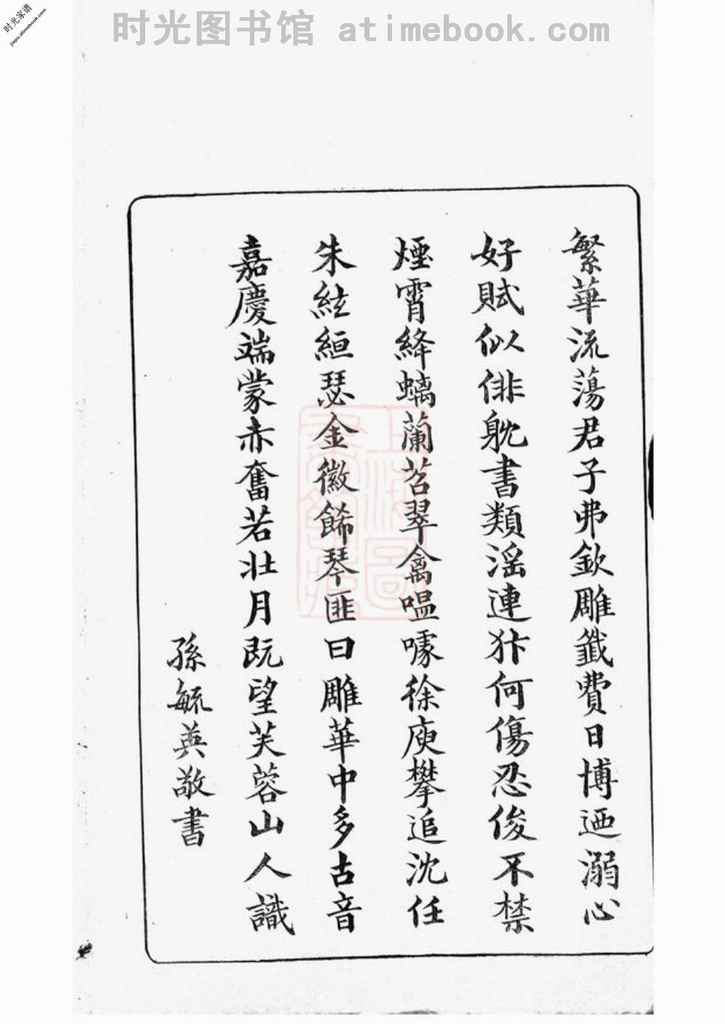 时光图书馆 atimebook.com
时光家谱
繁華流蕩君子弗欽雕鐫費日博迺溺心
好賦似俳躭書類滛連犿何傷忍俊不禁
煙霄絳螭蘭苕翠禽嗢噱徐庾攀追沈任
朱絃絙瑟金徽餙琴匪曰雕華中多古音
嘉慶端蒙赤奮若壯月既望芙蓉山人識
孫毓英敬書